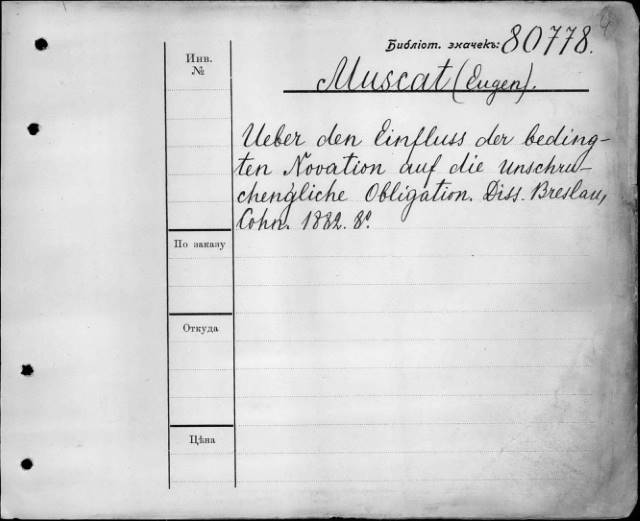 Библіот. значекъ: 80778.
Инв.
№
Muscat (Eugen).
Ueber den Einfluss der beding-
ten Novation auf die unschru-
chengliche Obligation. Diss. Breslau,
Cohn. 1882. 8º.
По заказу
Откуда
Цѣна